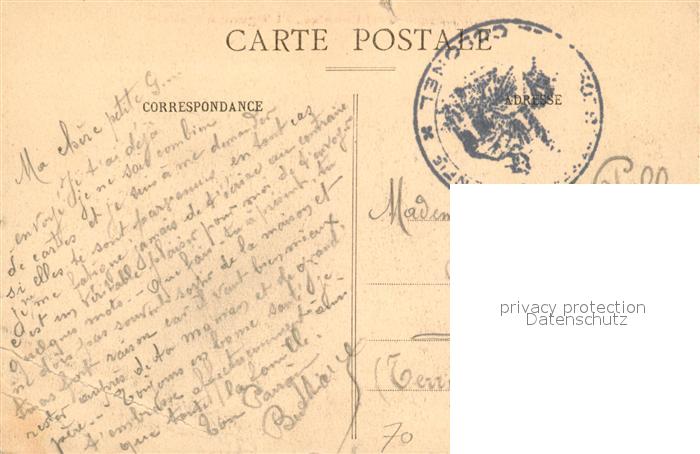 CARTE POSTALE
CORRESPONDANCE
ADRESSE
Ma chère petite G
Je t'ai déjà
envoyé je ne sais combien
de cartes et je suis à me demander
si elles te sont parvenues en tout cas
je ne me fatigue jamais de t'écrire au contraire
c'est un véritable plaisir pour moi de t'envoyer
quelques mots. Que fais-tu à présent tu
ne dois pas souvent sortir de la maison et
tu as fort raison car il vaut bien mieux
rester auprès de ta maman et de grand
père. Toujours en bonne santé je
t'embrasse affectueusement ainsi
que toute la famille.
Ton Parrain
Madem
(Terri
70
COLONEL
privacy protection
Datenschutz